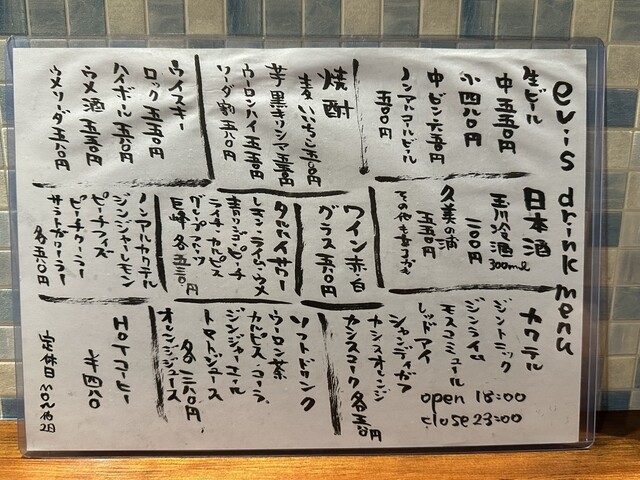 evis drink menu
生ビール
中 五五〇円
小 四八〇円
中ビン 六五〇円
ノンアルコールビール
五〇〇円
焼酎
麦 いいちこ 五〇〇円
芋 黒キリシマ 五五〇円
ウーロンハイ 五五〇円
ソーダ割 五八〇円
ウイスキー
ロック 五五〇円
ハイボール 五五〇円
ウメ酒 五五〇円
ウメソーダ 五八〇円
日本酒
玉川冷酒 300ml
久美の浦
五五〇円
ワイン 赤・白
グラス 五八〇円
タルハイサワー
レモン・ライム・ウメ
ライチ カルピス
巨峰 各五三〇円
ノンアルカクテル
ジンジャーレモン
ピーチフィズ
ピーチクーラー
サマークーラー
各五八〇円
カクテル
ジントニック
ジンライム
モスコミュール
レッドアイ
シャンディガフ
カシスオレンジ
カシスコーク 各五八〇円
open 18:00
close 23:00
ソフトドリンク
ウーロン茶
カルピス・コーラ
ジンジャーエール
トマトジュース
オレンジジュース
HOTコーヒー
¥四八〇
定休日 MON 他2日